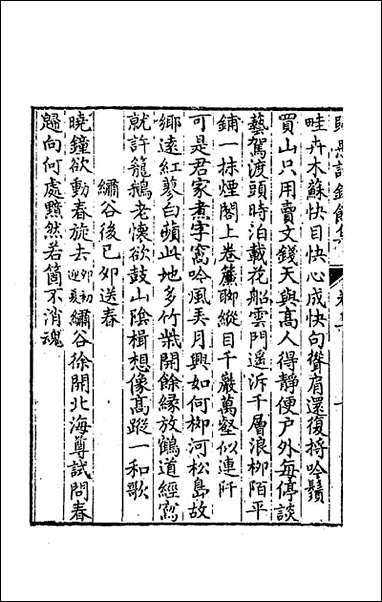 畦卉木蘇快目快心成快句聳肩還復捋吟鬚
買山只用賣文錢天與高人得靜便户外每停談
藝駕渡頭時泊載花船雲門遥泝千層浪柳陌平
鋪一抹煙閣上卷簾聊縱目千巖萬壑似連阡
可是君家煮字窩吟風弄月興如何柳河松島故
鄉遠紅蓼白蘋此地多竹開餘緣放鶴道經寫
就許籠鵝老懷欲鼓山陰楫想像高蹤一和歌
繡谷後已夘送春
曉鐘欲動春旋去夘初迎夏繡谷徐開北海尊試問春
歸向何處黯然若箇不消魂